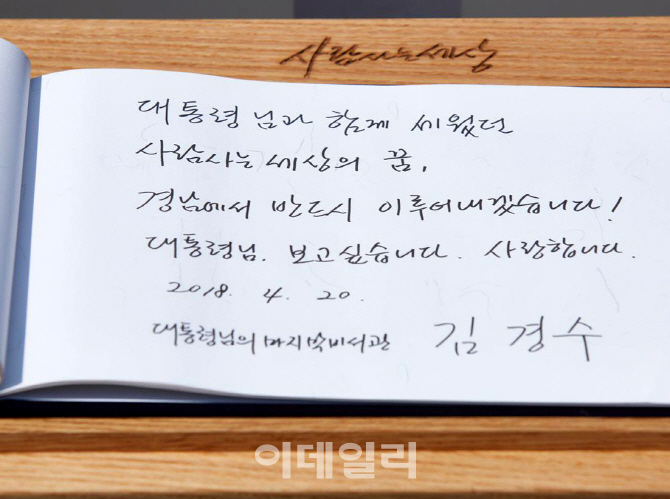 사람사는세상
대통령님과 함께 세웠던
사람사는세상의 꿈,
경남에서 반드시 이루어내겠습니다!
대통령님. 보고싶습니다. 사랑합니다.
2018. 4. 20.
대통령님의 마지막비서관 김경수
이데일리